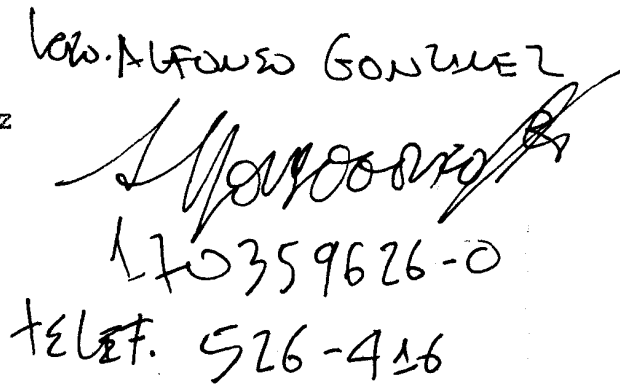 Lcdo. ALFONSO GONZALEZ
z
170359626-0
TELEF. 526-416